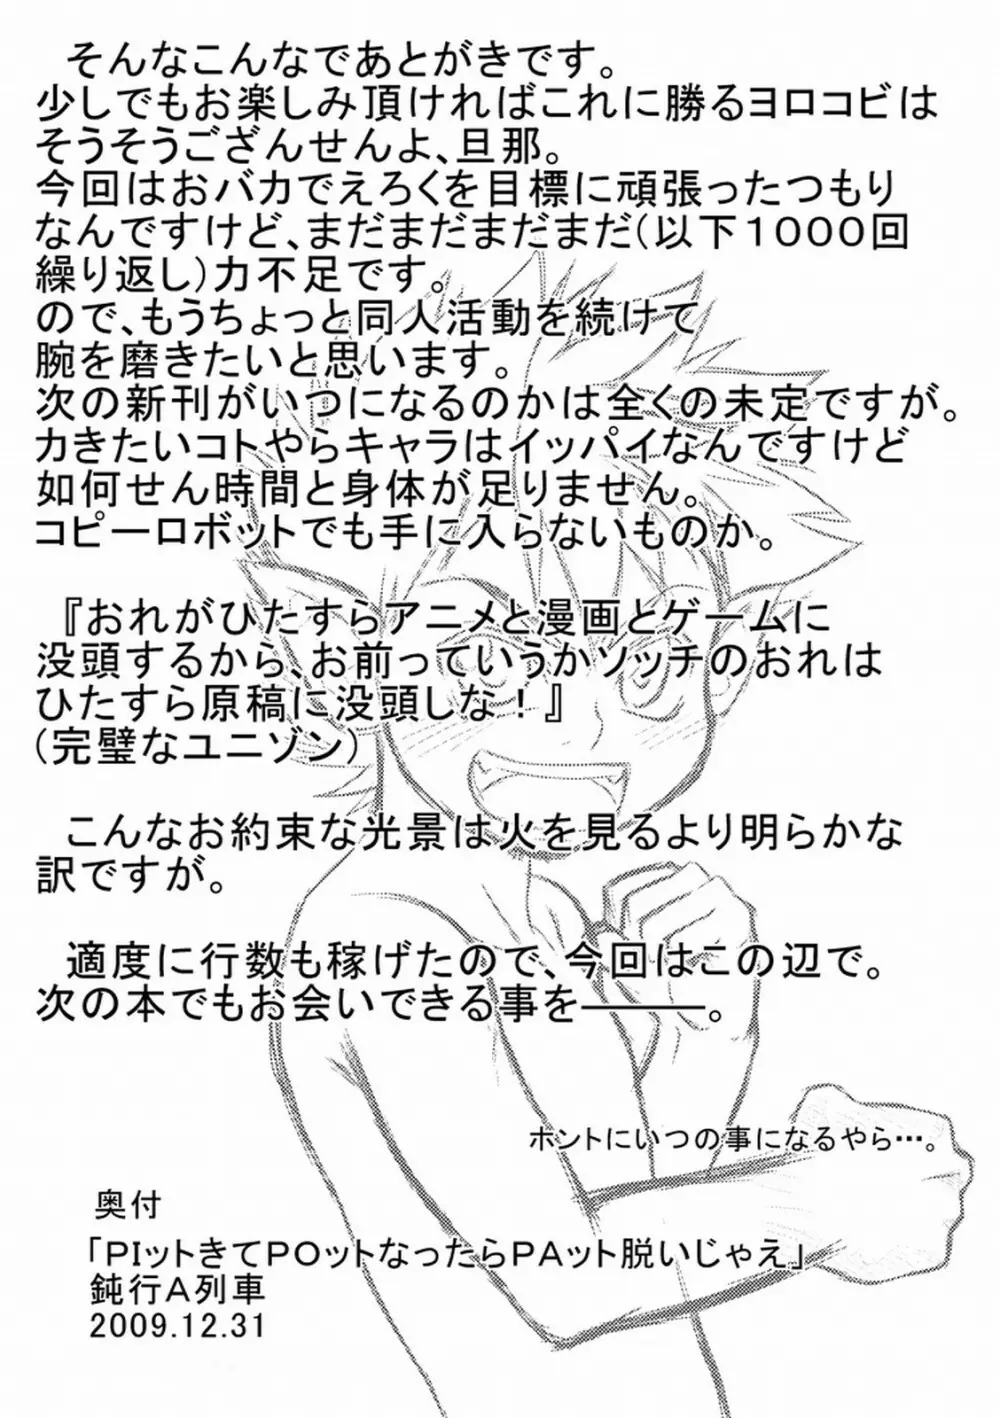 そんなこんなであとがきです。
少しでもお楽しみ頂ければこれに勝るヨロコビは
そうそうござんせんよ、旦那。
今回はおバカでえろくを目標に頑張ったつもり
なんですけど、まだまだまだまだ(以下1000回
繰り返し)力不足です。
ので、もうちょっと同人活動を続けて
腕を磨きたいと思います。
次の新刊がいつになるのかは全くの未定ですが。
カきたいコトやらキャラはイッパイなんですけど
如何せん時間と身体が足りません。
コピーロボットでも手に入らないものか。
『おれがひたすらアニメと漫画とゲームに
没頭するから、お前っていうかソッチのおれは
ひたすら原稿に没頭しな!』
(完璧なユニゾン)
こんなお約束な光景は火を見るより明らかな
訳ですが。
適度に行数も稼げたので、今回はこの辺で。
次の本でもお会いできる事を――――。
ホントにいつの事になるやら…。
奥付
「PIットきてPOットなったらPAット脱いじゃえ」
鈍行A列車
2009.12.31